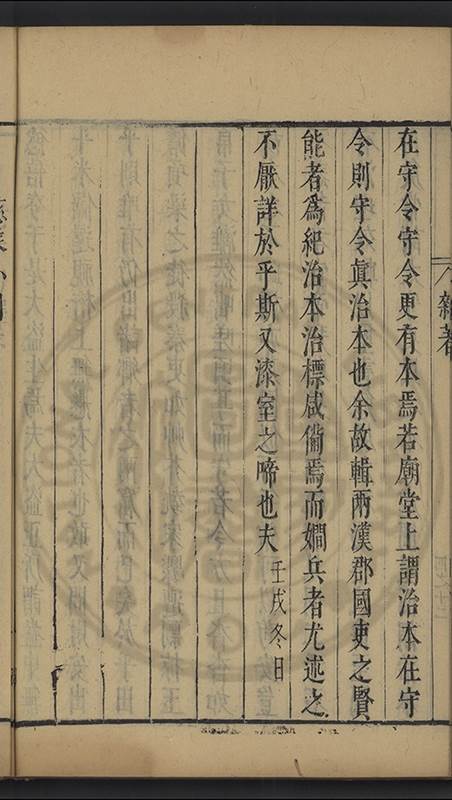 雜著
在守令守令更有本焉若廟堂上謂治本在守
令則守令眞治本也余故輯兩漢郡國吏之賢
能者爲紀治本治標咸備焉而嫺兵者尤述之
不厭詳於乎斯又漆室之啼也夫壬戌冬日